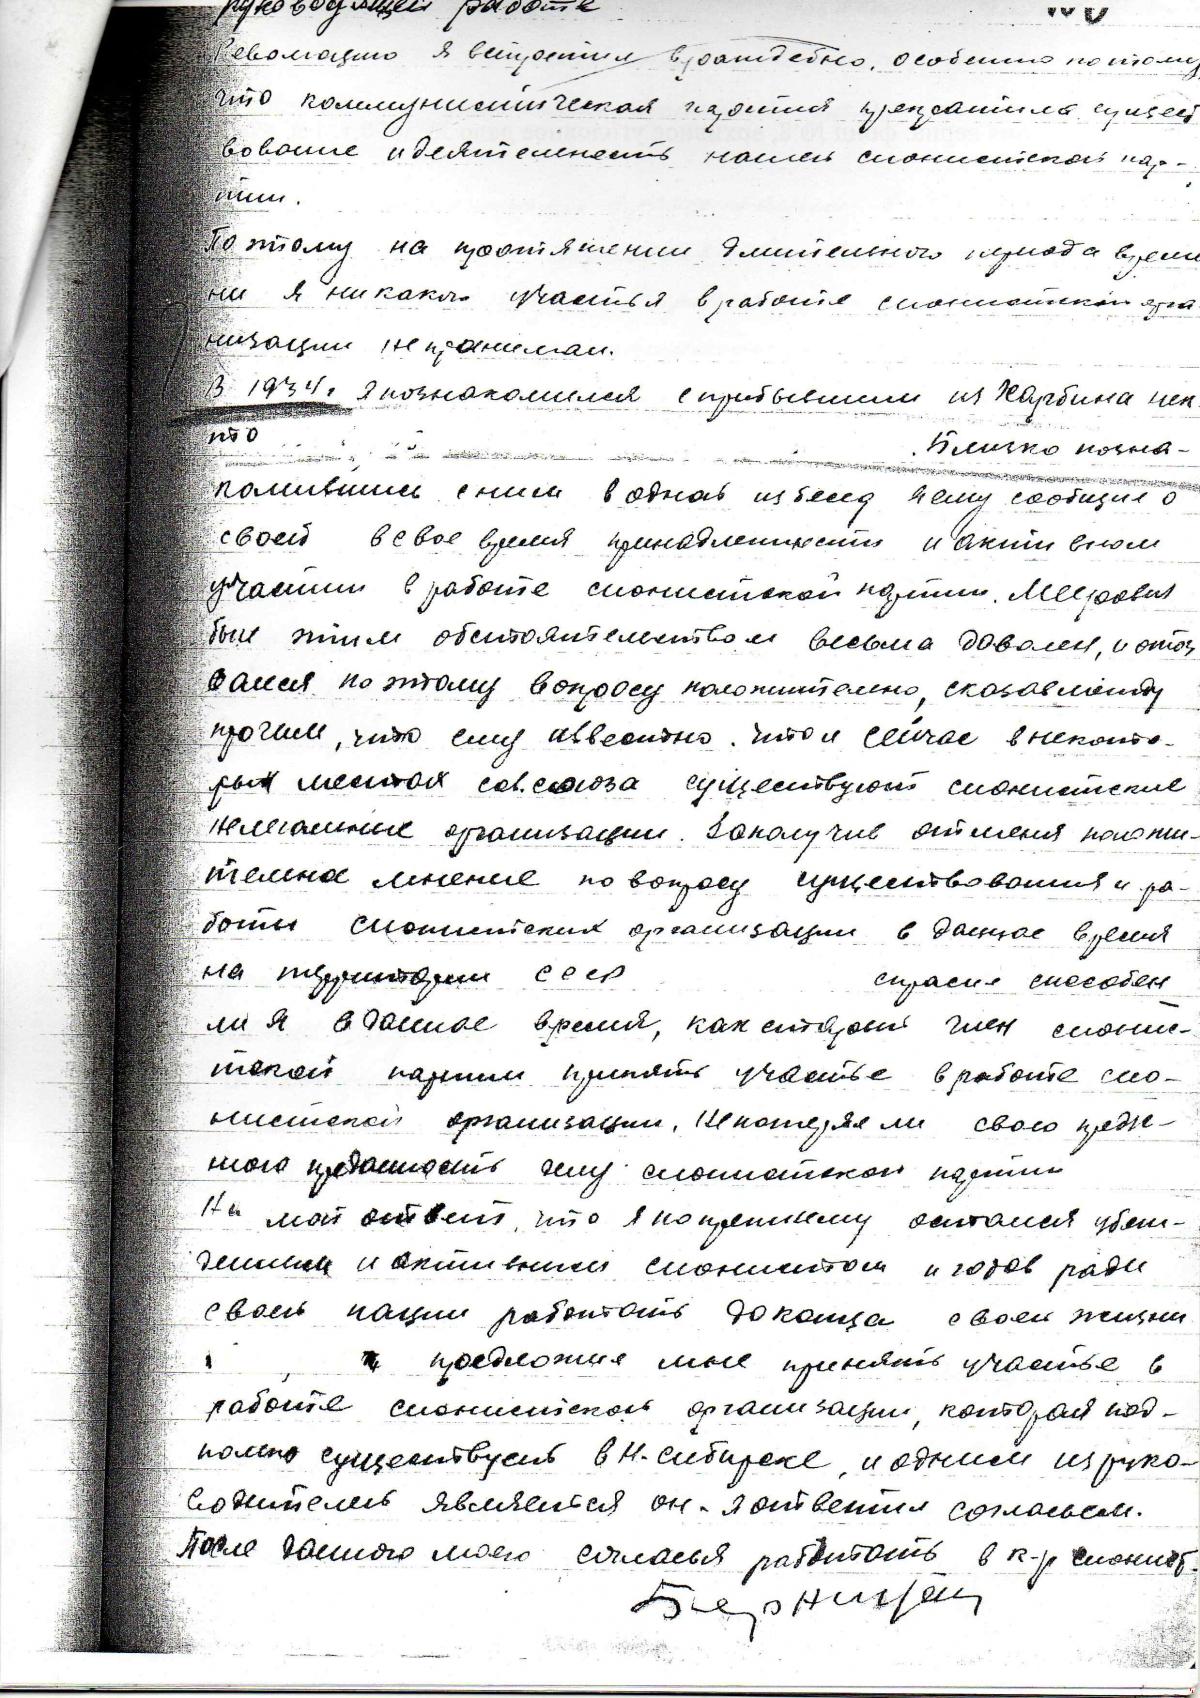 руководящей работе
Революцию я встретил враждебно, особенно потому
что коммунистическая партия прекратила сущест
вование и деятельность нашей сионистской пар-
тии.
Поэтому на протяжении длительного периода време
ни я никакого участья в работе сионистской орга
низации не принимал.
В 1934 г. я познакомился с прибывшим из Харбина нек
то
. Близко позна-
комившись с ним в одной из бесед я ему сообщил о
своей в свое время принадлежности и активном
участии в работе сионистской партии. Меерович
был этим обстоятельством весьма доволен, и отоз
вался по этому вопросу положительно, сказав между
прочим, что ему известно. что и сейчас в некото-
рых местах сов.союза существуют сионистские
нелегальные организации. Заполучив от меня положи-
тельное мнение по вопросу существования и ра-
боты сионистских организации в данное время
на территории СССР спросил способен
ли я в данное время, как старый член сионис-
тской партии принять участье в работе сио-
нистской организации. Не потерял ли свою преж-
нюю преданность делу сионистской партии
На мой ответ, что я по прежнему остался убеж-
денным и активным сионистом и готов ради
своей нации работать до конца своей жизни
предложил мне принять участье в
работе сионистской организации, которая под-
польно существует в Н.-Сибирске, и одним из руко-
водителей является он. Я ответил согласьем.
После данного моего согласья работать в к-р сионист.